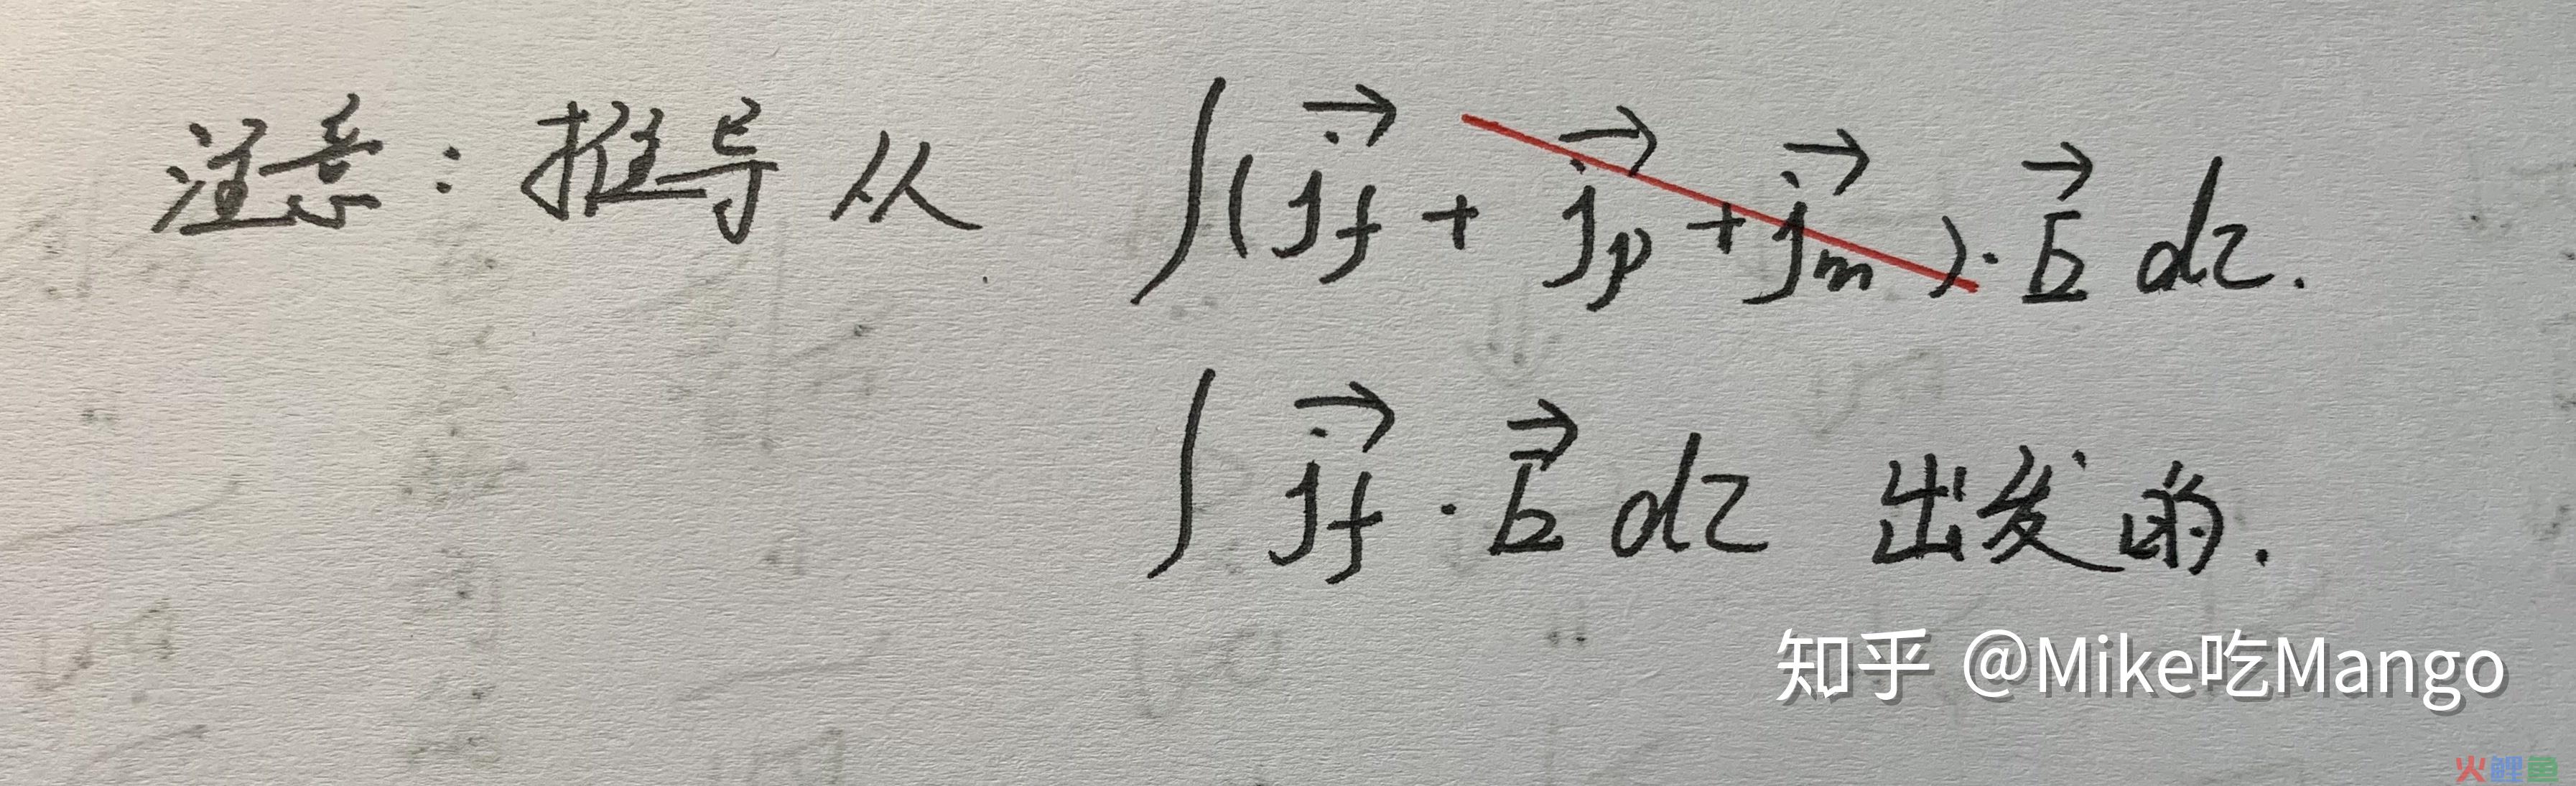 注意：推导从 ∫(j⃗f + j⃗p + j⃗m)·E⃗ dτ.
∫ j⃗f · E⃗ dτ 出发的.
知乎 @Mike吃Mango
火鲤鱼